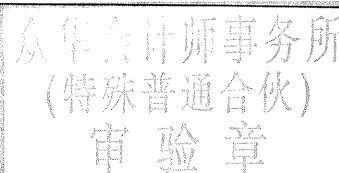 众华会计师事务所
(特殊普通合伙)
审验章